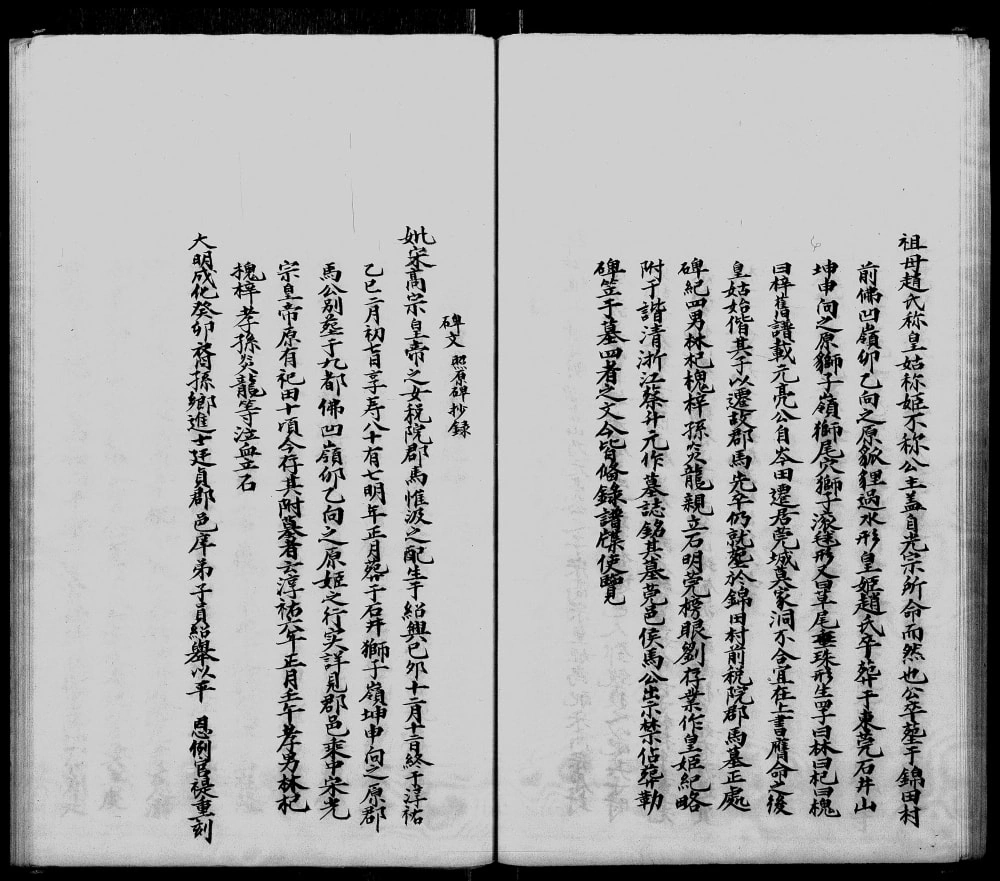 祖母趙氏称皇姑称姬不称公主盖自光宗所命而然也公卒塟于錦田村
前佛凹嶺卯乙向之原狐狸過水形皇姬趙氏卒葬于東莞石井山
坤申向之原獅子嶺獅尾穴獅子滚毬形又曰草尾垂珠形生四子曰林曰杞曰槐
曰梓舊譜載元亮公自岑田遷居莞城莫家洞不合宜在上書膺命之後
皇姑始偕其子以遷故郡馬先卒仍就塟於錦田村前税院郡馬墓正處
碑紀四男林杞槐梓孫炎龍親立石明莞榜眼劉存業作皇姬紀略
附于譜清浙江蔡井元作墓誌銘其墓莞邑侯馬公出示禁佔葬勒
碑竖于墓四者之文今皆俻錄譜牒使覽
碑文 照原碑抄録
妣宋髙宗皇帝之女税院郡馬惟汲之配生于紹興己卯十二月十二日終于淳祐
乙巳二月初七日享寿八十有七明年正月葬于石井獅子嶺坤申向之原郡
馬公别塟于九都佛凹嶺卯乙向之原姬之行实詳見郡邑乘中宋光
宗皇帝原有祀田十頃今存其附墓者云淳祐六年正月壬午孝男林杞
槐梓孝孫炎龍等泣血立石
大明成化癸卯裔孫鄉進士廷貞郡邑庠弟子員紹舉以平 恩例官禔重刻